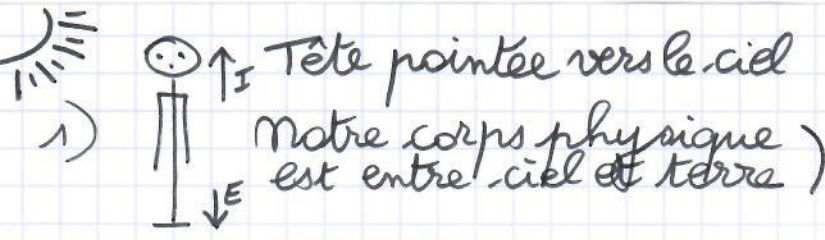 I Tête pointée vers le ciel
1) Notre corps physique
est entre ciel et terre )
E